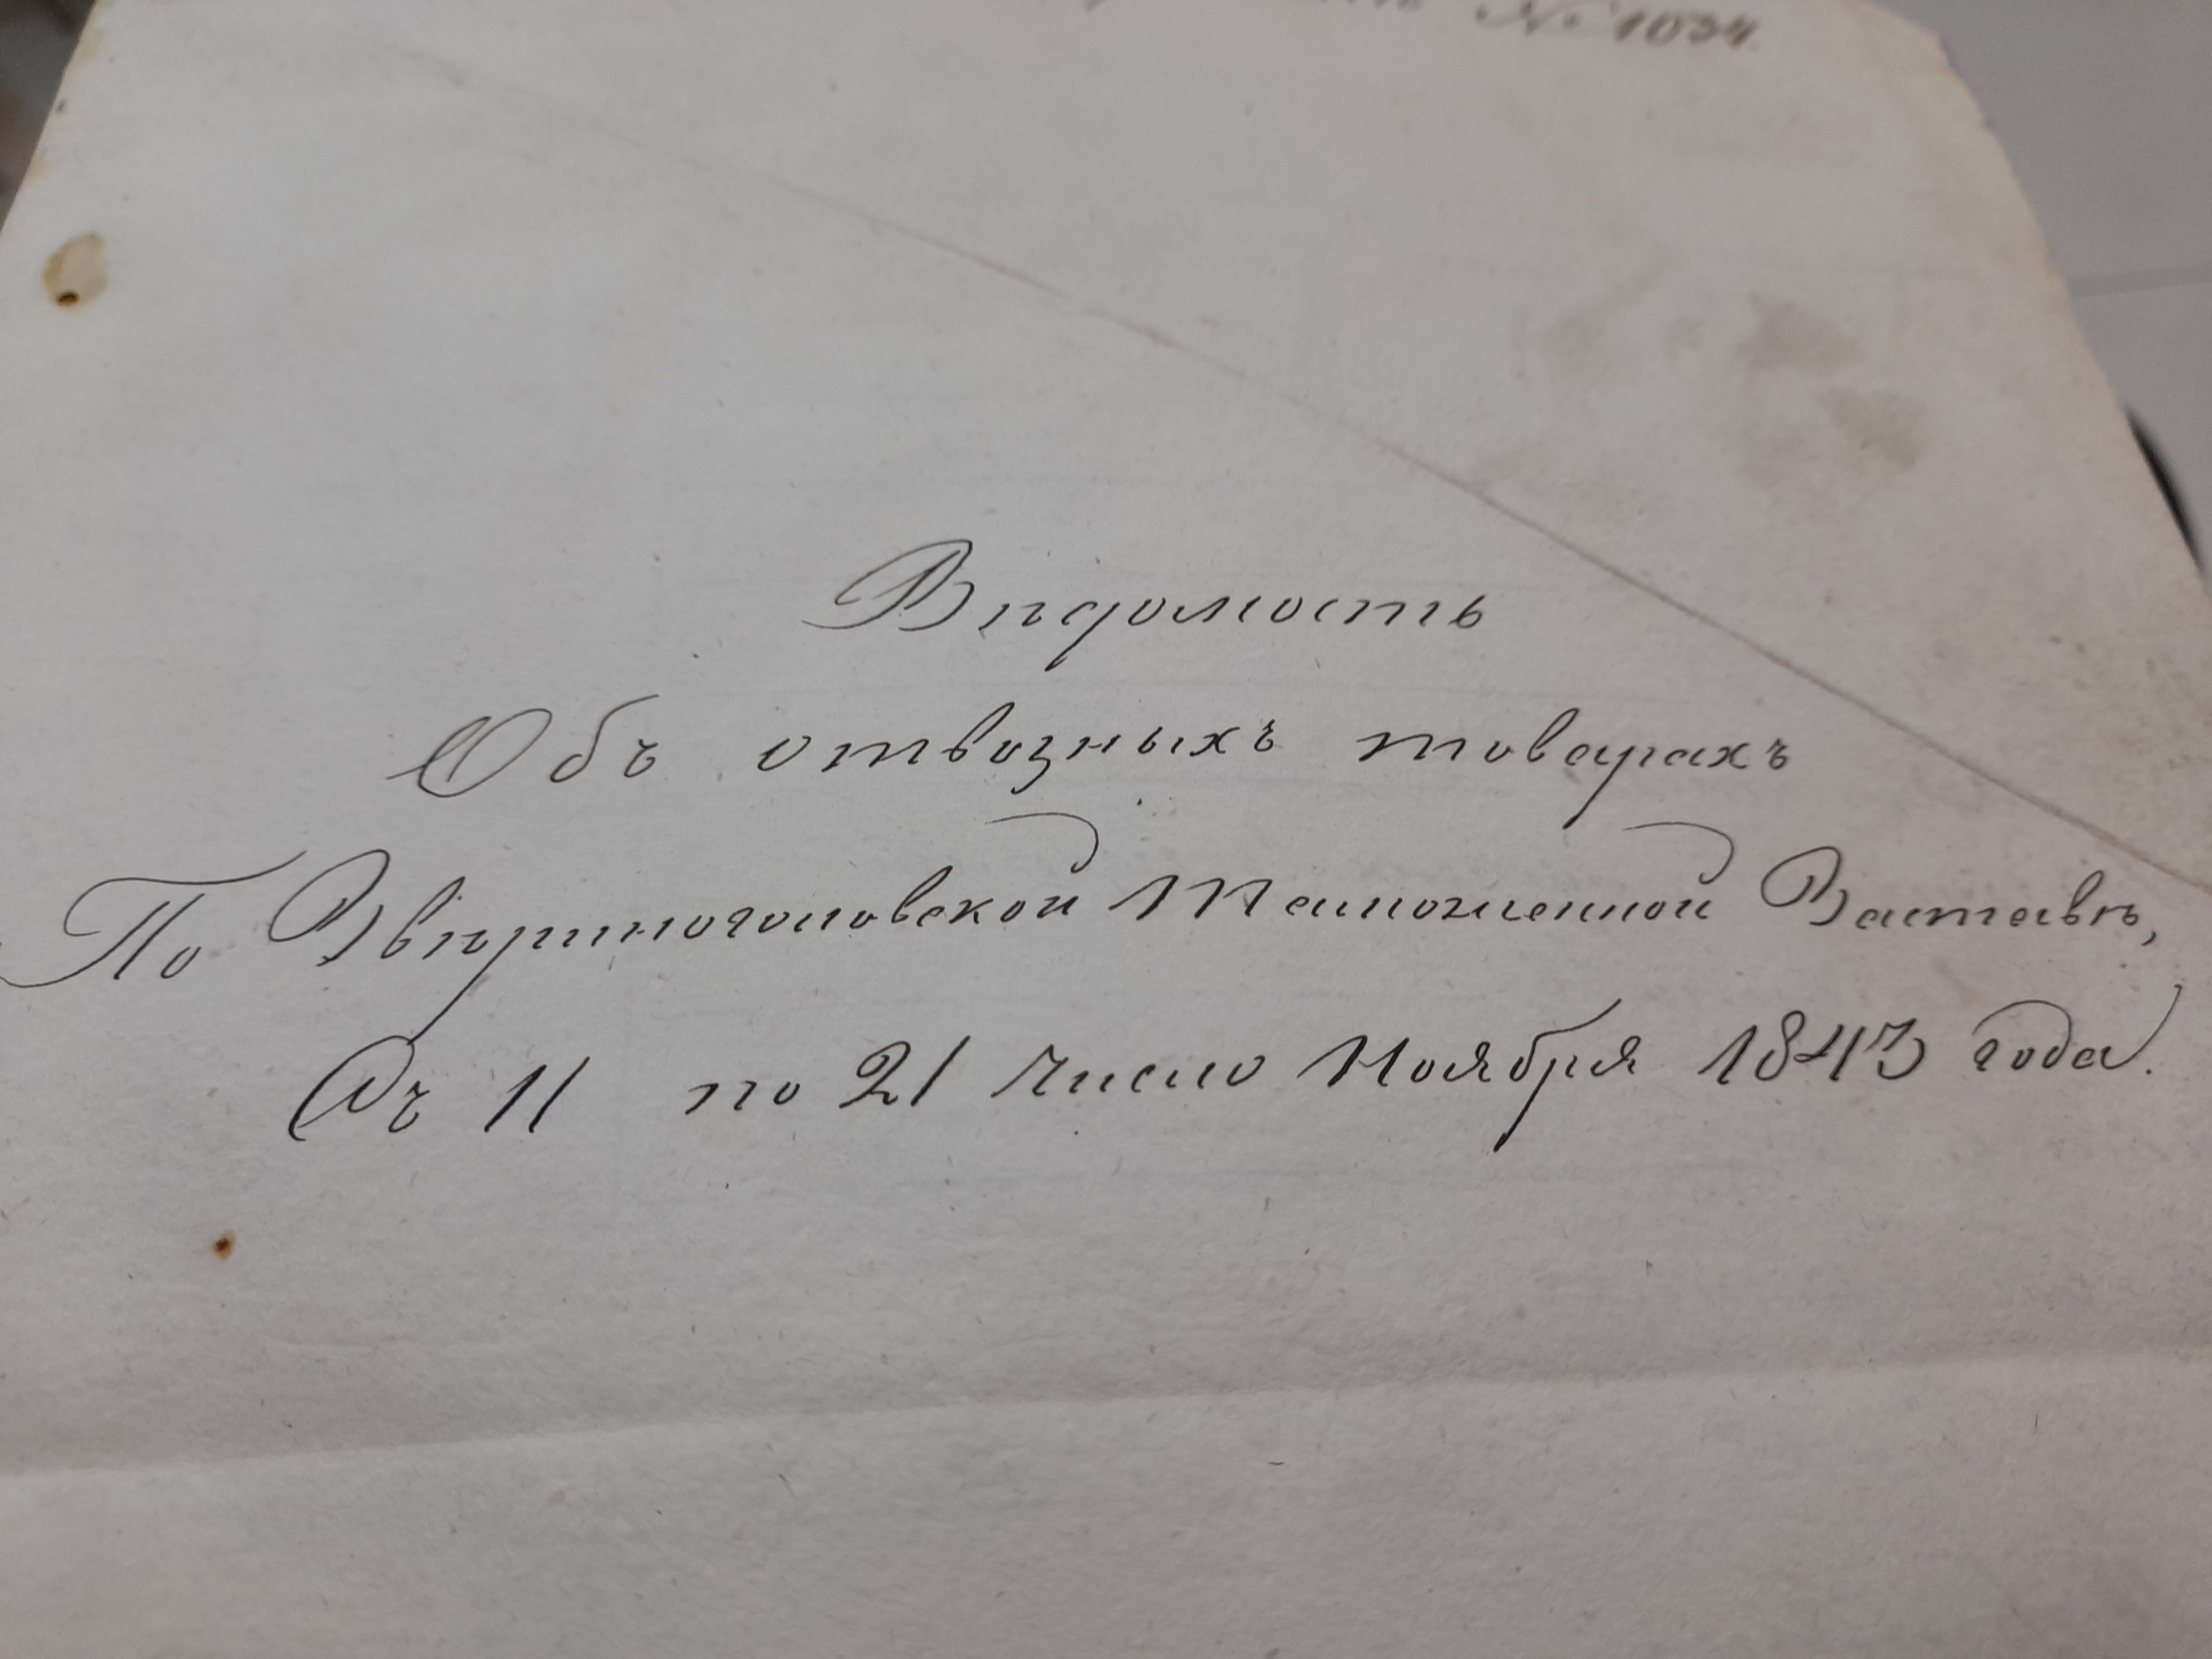 № 1034
Вѣдомость
Объ отвозныхъ товарахъ
По Звѣриноголовской Таможенной Заставѣ,
Съ 11 по 21 число Ноября 1843 года.